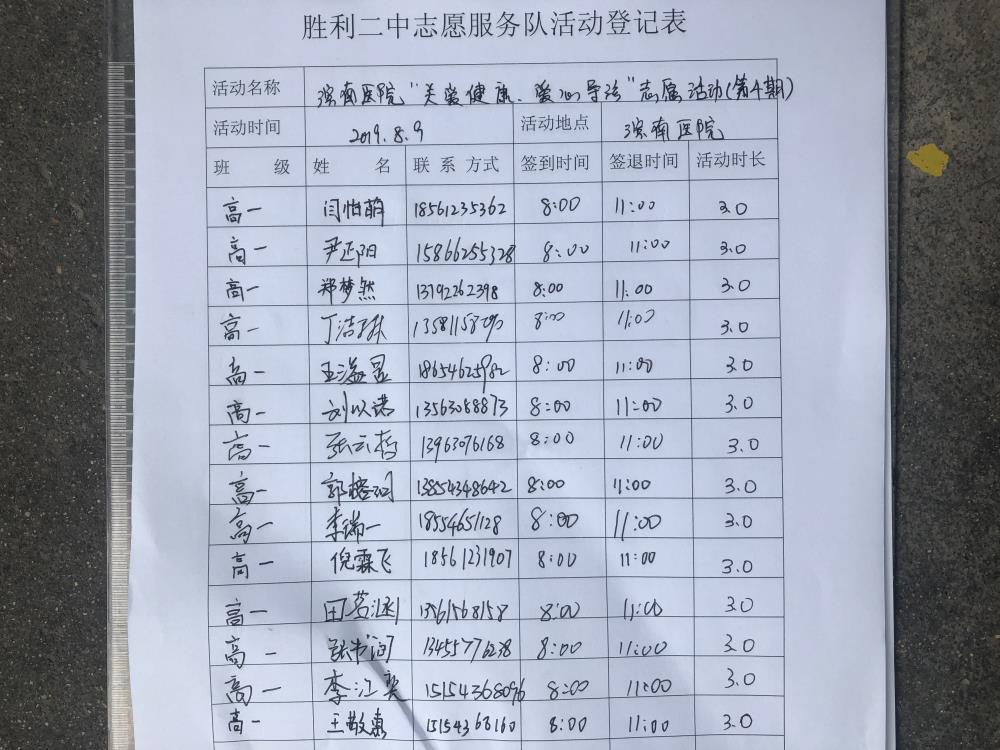 胜利二中志愿服务队活动登记表
活动名称 滨南医院“关爱健康、爱心导诊”志愿活动(第4期)
活动时间 2019.8.9 活动地点 滨南医院
班 级 姓 名 联系方式 签到时间 签退时间 活动时长
高一 闫怡萌 18561235362 8:00 11:00 3.0
高一 尹正阳 15866255328 8:00 11:00 3.0
高一 郑梦然 13192262398 8:00 11:00 3.0
高一 丁洁琳 13581158090 8:00 11:00 3.0
高一 王溢昱 18654625982 8:00 11:00 3.0
高一 刘以诺 13563058873 8:00 11:00 3.0
高一 张云哲 13963076168 8:00 11:00 3.0
高一 郭榕 13854348642 8:00 11:00 3.0
高一 李瑞一 18554651128 8:00 11:00 3.0
高一 倪霖飞 18561231907 8:00 11:00 3.0
高一 田茗涵 13561568158 8:00 11:00 3.0
高一 张书润 13455776238 8:00 11:00 3.0
高一 李江奕 15154368096 8:00 11:00 3.0
高一 王敬惠 15154368160 8:00 11:00 3.0